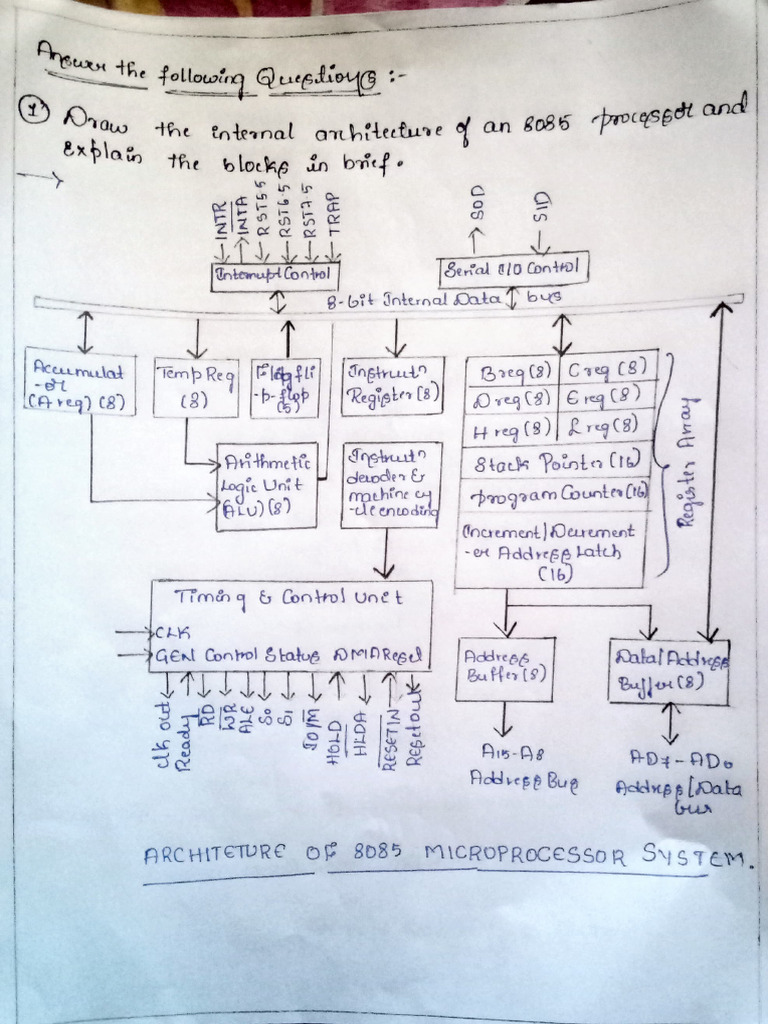 Answer the following Questions :-
1) Draw the internal architecture of an 8085 processor and
explain the blocks in brief.
INTR
INTA
RST5.5
RST6.5
RST7.5
TRAP
SOD
SID
Interrupt Control
Serial I/O Control
8-bit Internal Data bus
Accumulat
-or
(A reg) (8)
Temp Reg
(8)
Flag fli
-p-flop
(5)
Instructn
Register (8)
B reg (8)
C reg (8)
D reg (8)
E reg (8)
H reg (8)
L reg (8)
Stack Pointer (16)
program Counter (16)
Increment/Decrement
-er Address Latch
(16)
Register Array
Arithmetic
Logic Unit
(ALU) (8)
Instructn
decoder &
machine cy
-cle encoding
Timing & Control Unit
CLK
GEN Control Status DMA Reset
Clk out
Ready
RD
WR
ALE
S0
S1
IO/M
HOLD
HLDA
RESET IN
Reset out
Address
Buffer (8)
Data/Address
Buffer (8)
A15-A8
Address Bus
AD7-AD0
Address/Data
bus
ARCHITETURE OF 8085 MICROPROCESSOR SYSTEM.